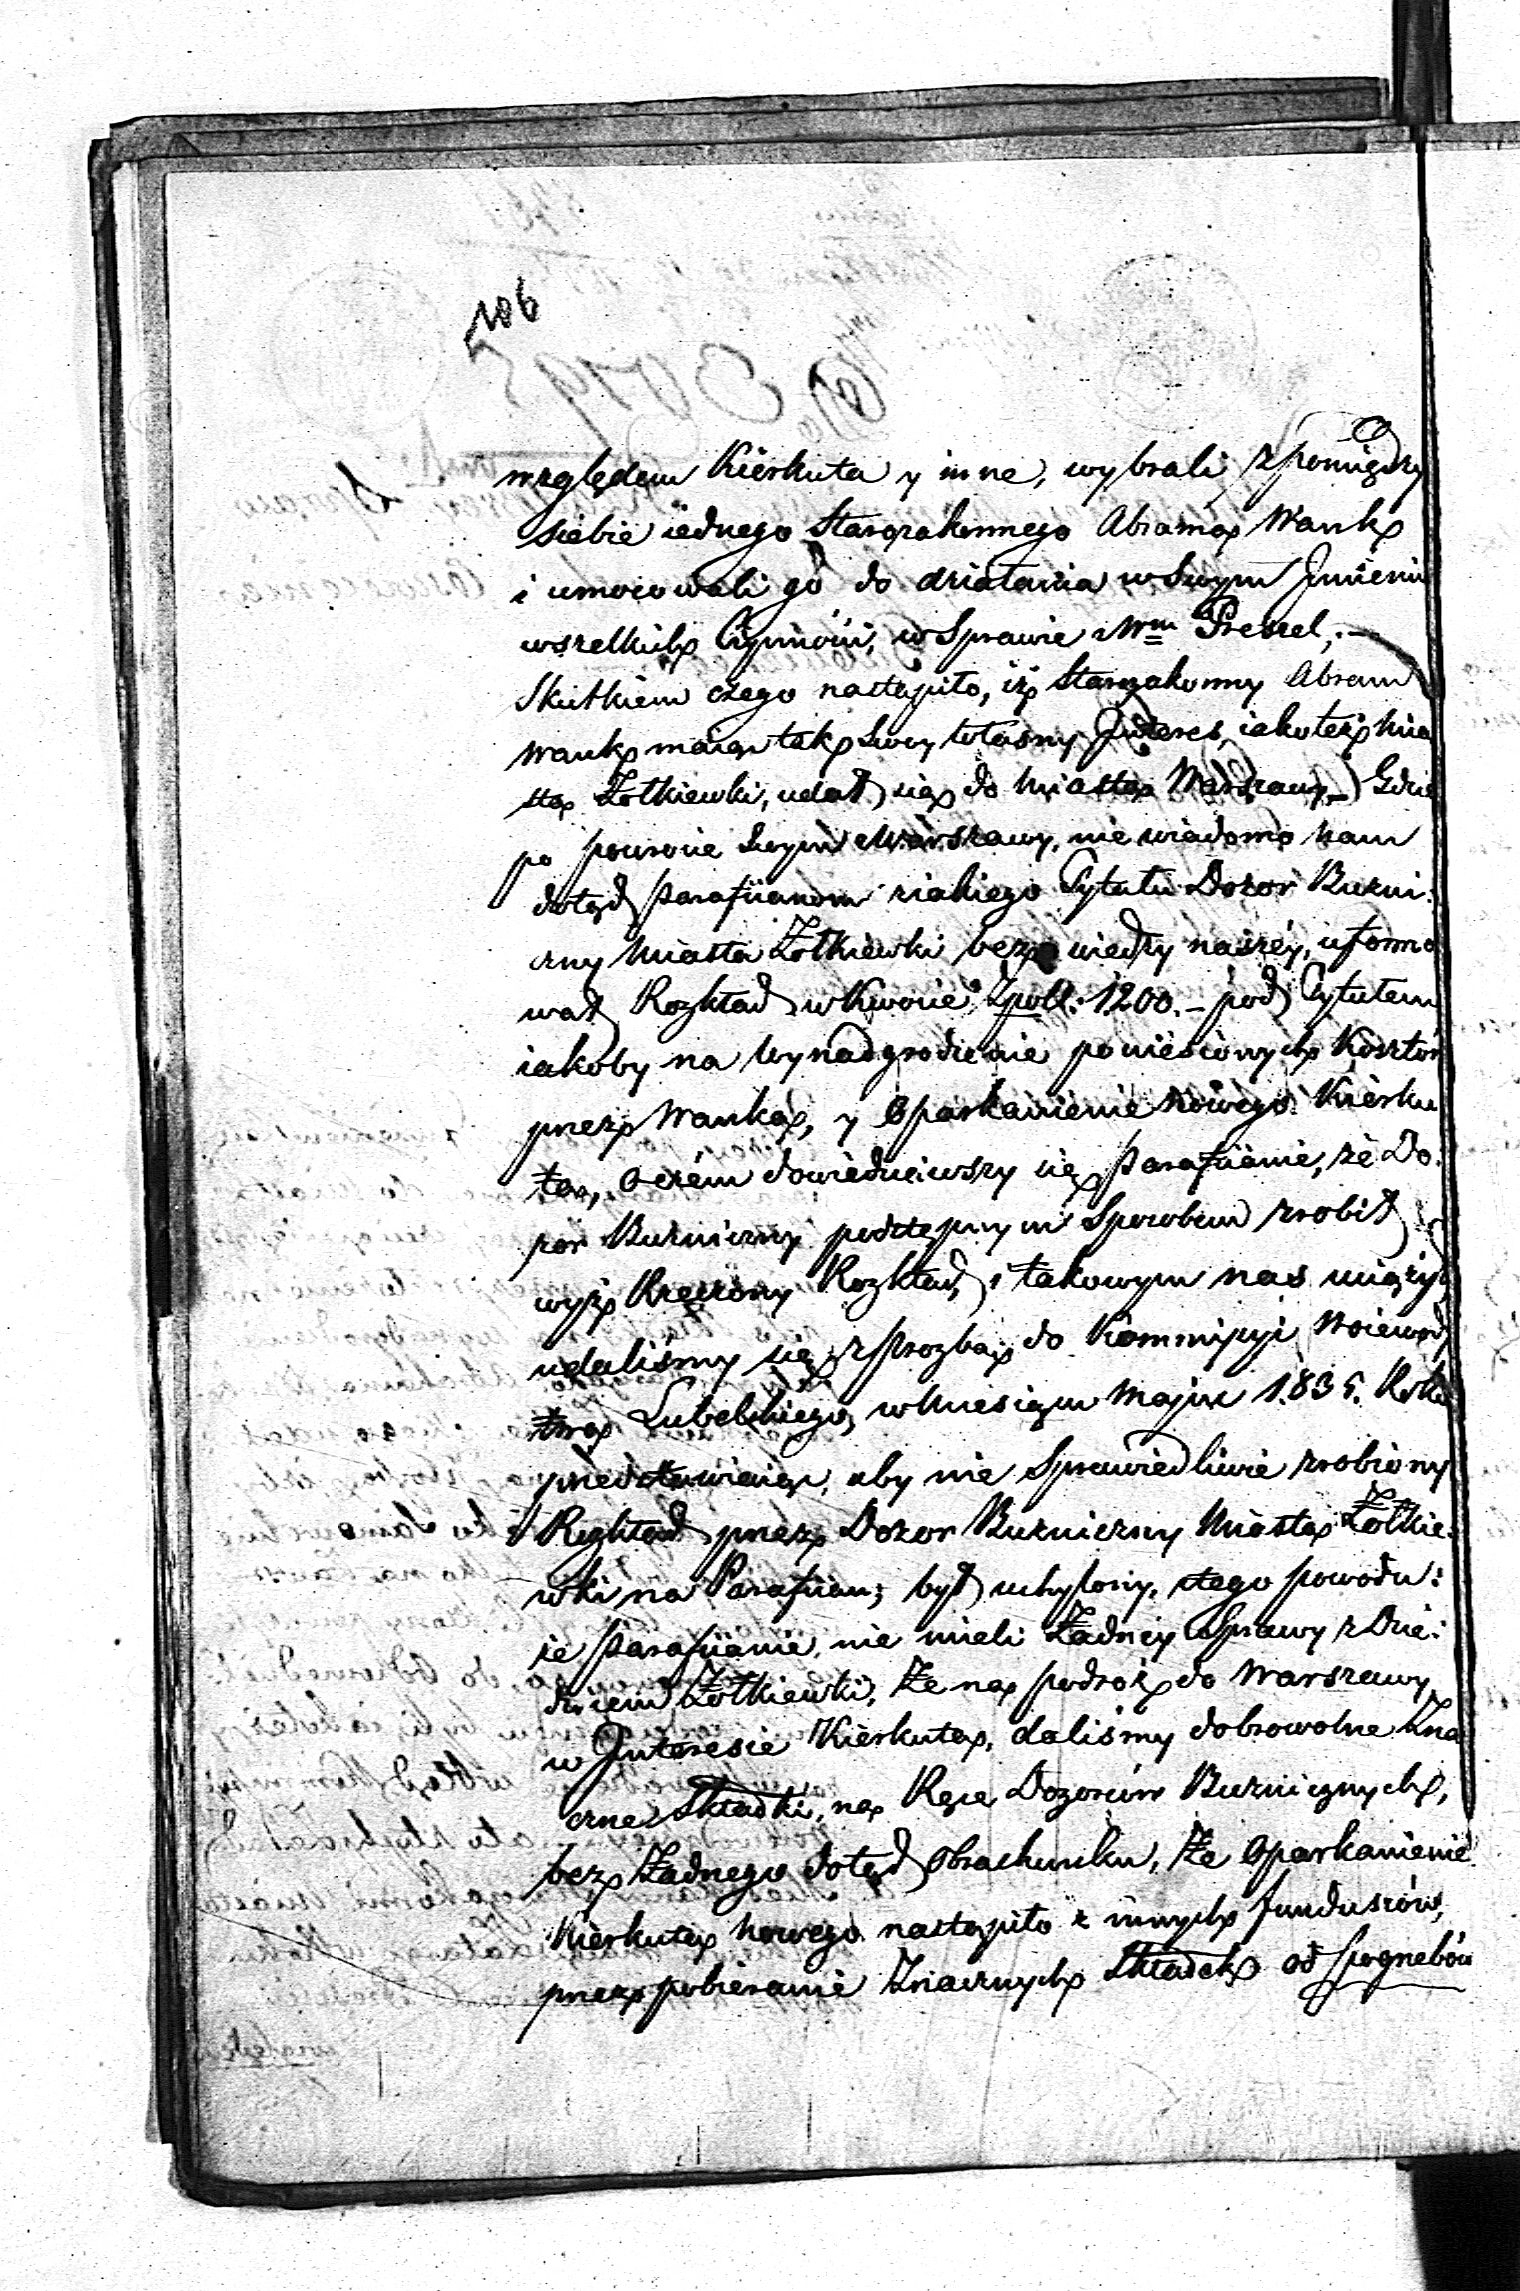 106
względem Kierkuta y inne, wybrali z pomiędzy
siebie iednego Starozakonnego Abrama Wank
i umocowali go do działania w Swym Jmieniu
wszelkich Czynnośći, w Sprawie
Skutkiem czego nastąpiło, iż Starozakonny Abram
Wank maiąc tak Swoy własny Jnteres, iakoteż Mia
sta Żołkiewki, udał się do Miasta Warszawy – Gdzie
po powrocie Swym z Warszawy, nie wiadomo nam
dotąd Parafiianom z iakiego Tytułu Dozor Buzni:
czny Miasta Żołkiewki bez wiedzy naszéy, uformo
wał Rozkład w Kwocie Zpoll: 1200. – pod Tytułem
iakoby na Wynadgrodzenie poniesionych Kosztów
przez Wanka, y Oparkanienie Nowego Kierku
ta, o czém dowiedziawszy się Parafiianie, że Do:
zor Buzniczny podstępnym Sposobem zrobił
wyż Rzeczony Rozkład, i takowym nas uciążył,
udaliśmy się z Proźbą do Kommissyi Woiewodz
twa Lubelskiego, w Miesiącu Maju 1835. Roku
przedstawiaiąc, aby nie Sprawiedliwie zrobiony
Rozkład przez Dozor Buzniczny Miasta Żołkie:
wki na Parafiian, był uchylony, z tego powodu:
że Parafiianie, nie mieli Żadney Sprawy z Dzie:
dzicem Żołkiewki, Że na podroż do Warszawy
w Jnteresie Kierkuta, daliśmy dobrowolne Zna
czne Składki, na Ręce Dozorców Buznicznych,
bez Żadnego dotąd Obrachunku, Że Oparkanienie
Kierkuta Nowego nastąpiło z innych funduszów,
przez pobieranie Znacznych Składek od Pogrzebów